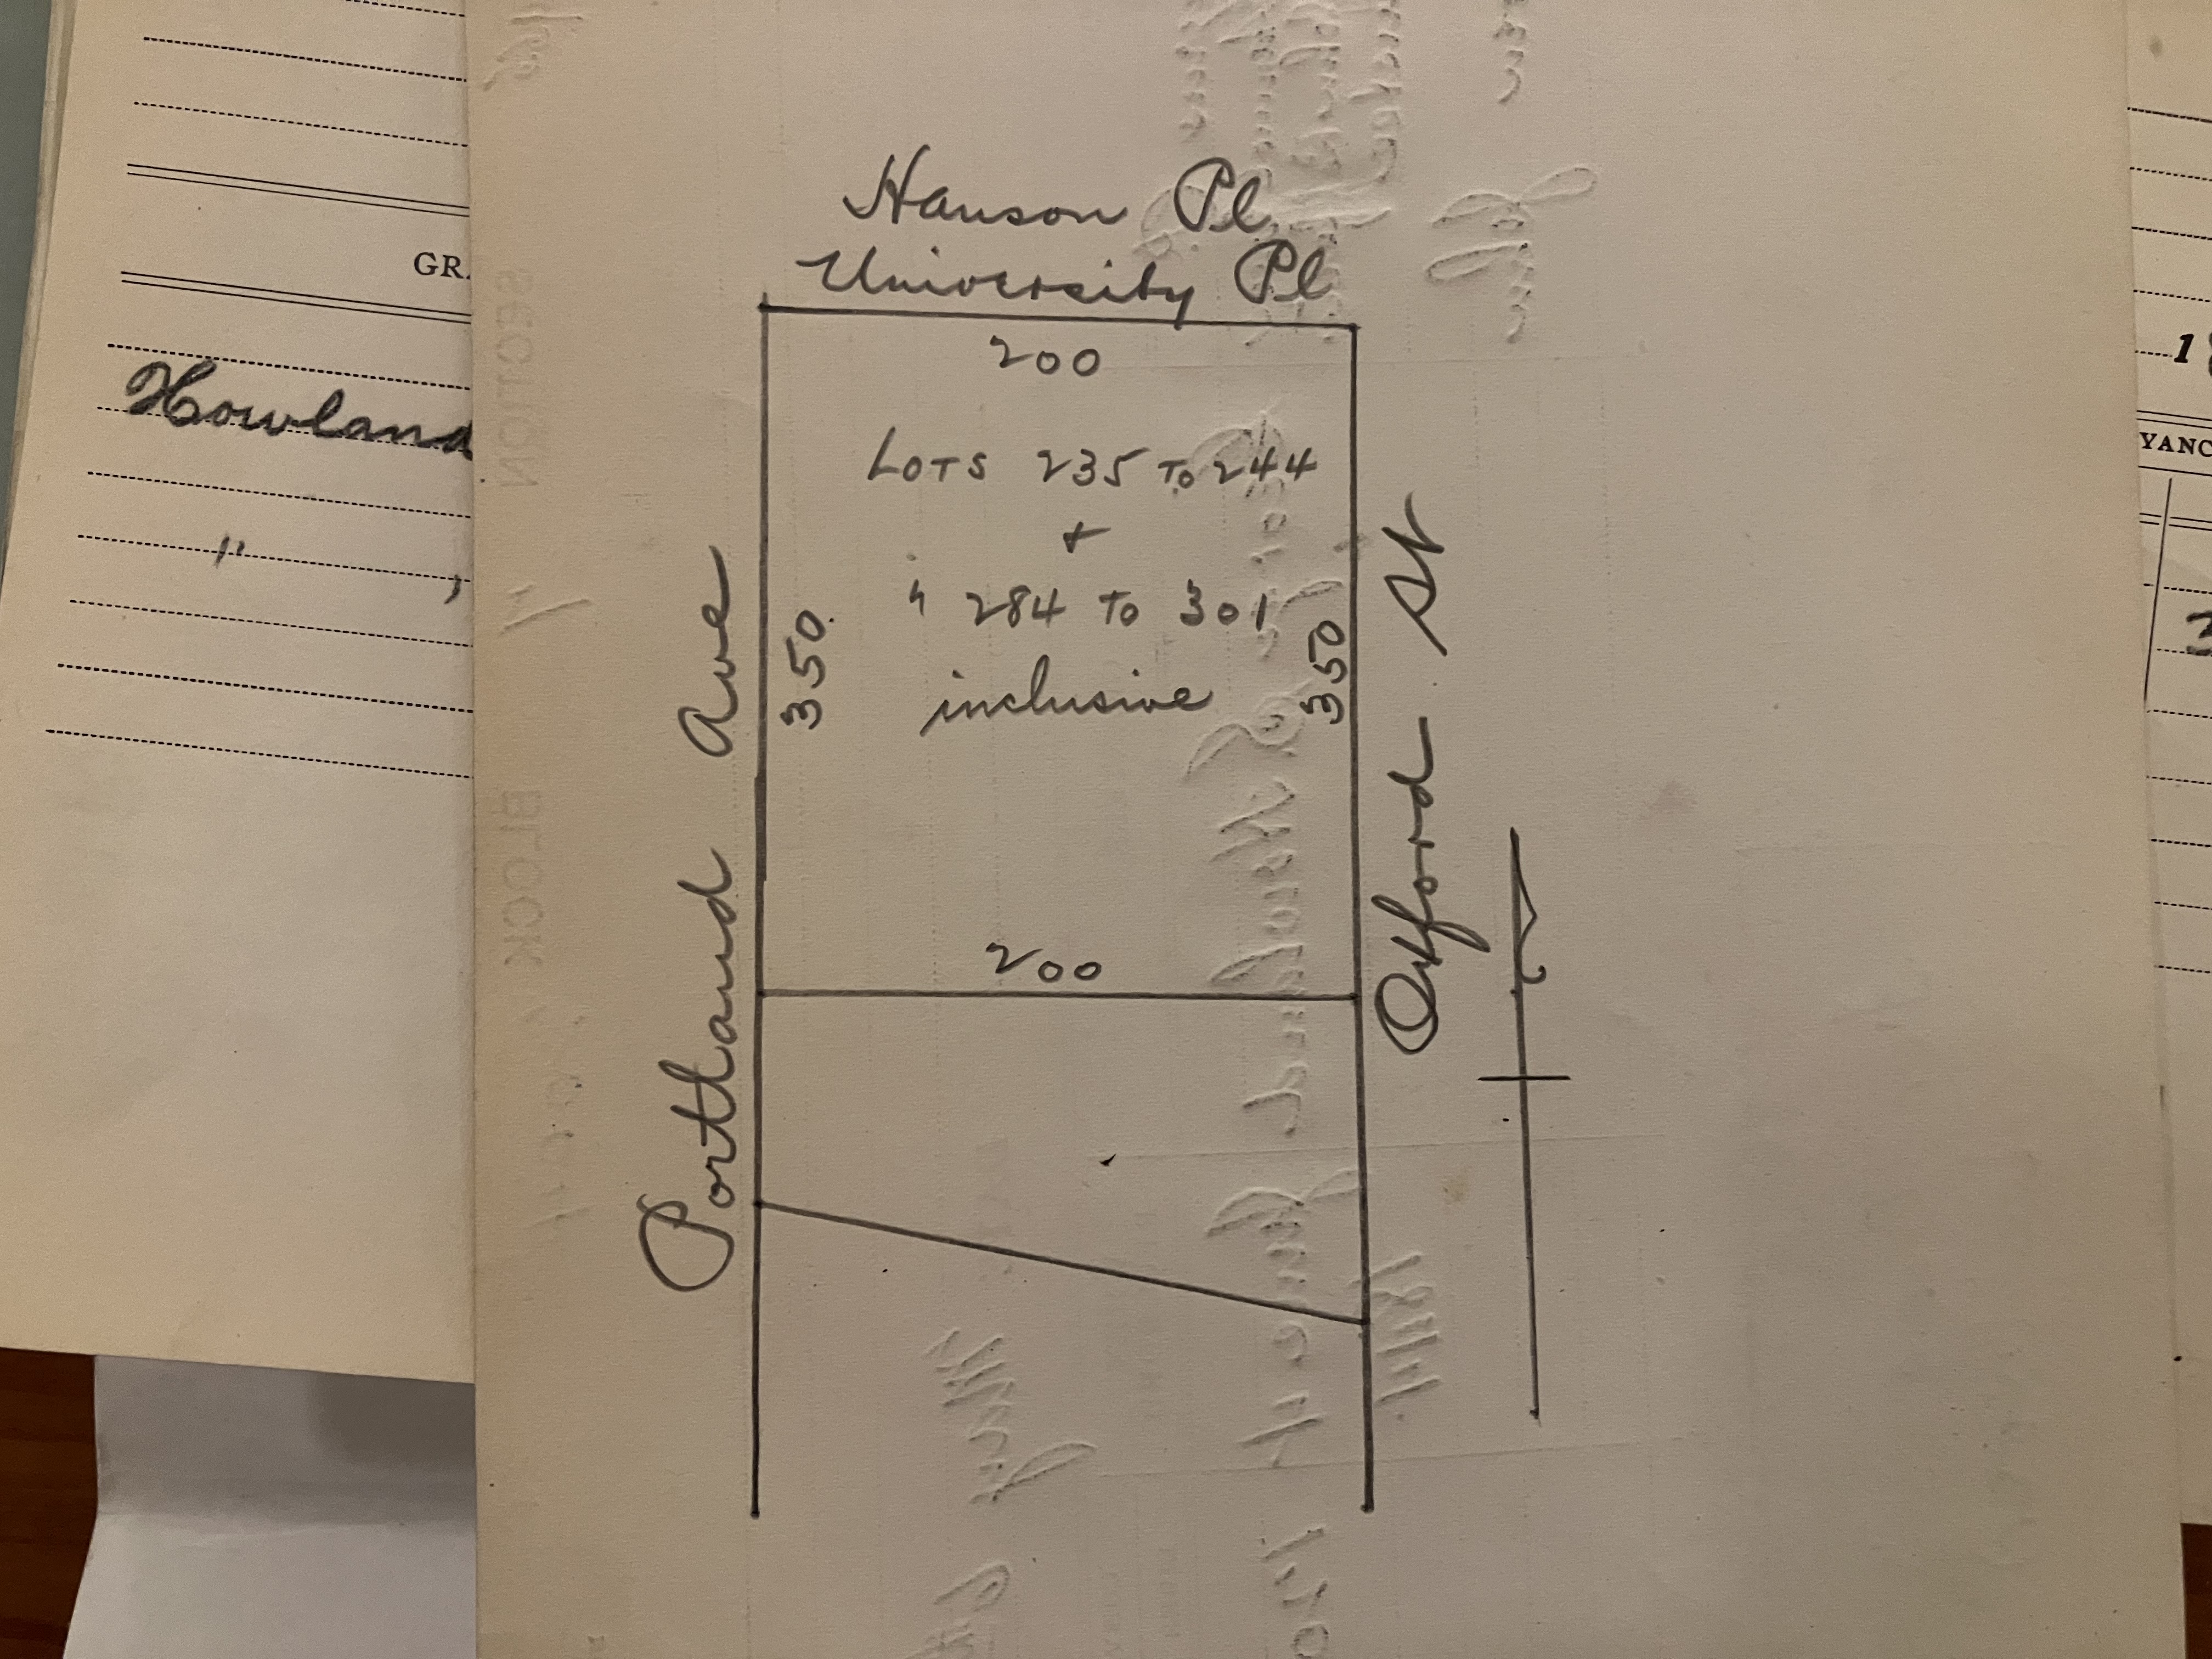 Hanson Pl
University Pl
200
LOTS 235 To 244
+
" 284 To 301
inclusive
350
350
200
Portland Ave
Oxford St
GR
Howland
"
SECTION
BLOCK
YANC
1
3